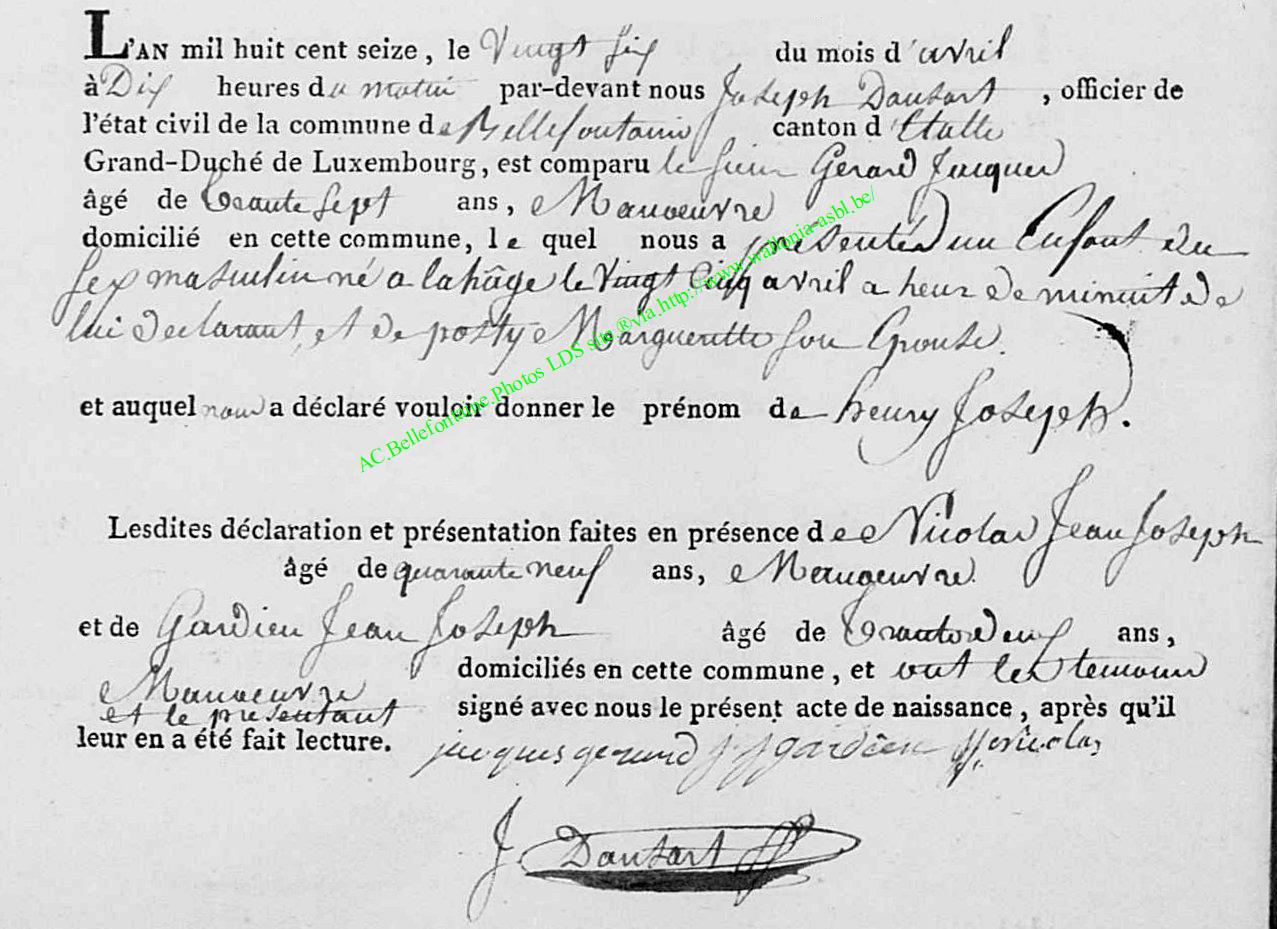 L'AN mil huit cent seize, le Vingt six du mois d'avril
à Dix heures du matin par-devant nous Joseph Dansart, officier de
l'état civil de la commune de Bellefontaine canton d'Etalle
Grand-Duché de Luxembourg, est comparu le sieur Gerard Jacques
âgé de trante sept ans, Manoeuvre
domicilié en cette commune, le quel nous a presentés un Enfant du
sex masculin né a lahâge le Vingt Cinq avril a heur de minuit de
lui declarant, et de posty Margueritte son Epouse.
et auquel nous a déclaré vouloir donner le prénom de henry Joseph.
Lesdites déclaration et présentation faites en présence de Nicolas Jean Joseph
âgé de quarante neuf ans, Manoeuvre.
et de Gardien Jean Joseph âgé de trante deux ans,
Manoeuvre domiciliés en cette commune, et ont les temoins
et le presentant signé avec nous le présent acte de naissance, après qu'il
leur en a été fait lecture. jacques gerard j j gardien jj nicolas
J Dansart
AC.Bellefontaine.Photos LDS site ®via.http://www.wallonia-asbl.be/